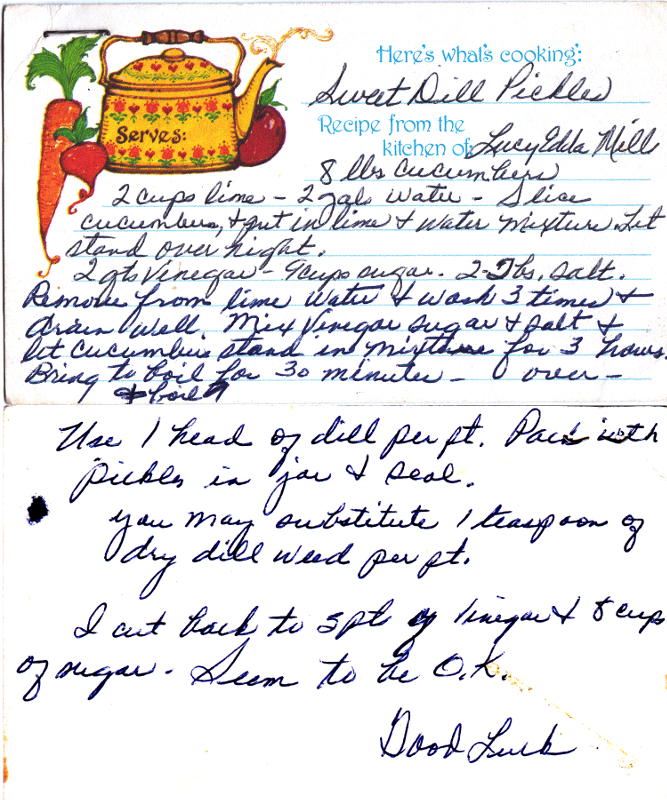 Here's what's cooking:
Sweet Dill Pickles
Serves:
Recipe from the
kitchen of: Lucy Edda Mill
8 lbs cucumbers
2 cups lime - 2 gals water - Slice
cucumbers, & put in lime & water mixture. Let
stand over night.
2 qts Vinegar - 9 cups sugar. 2 Tbs. salt.
Remove from lime water & wash 3 times &
drain well. Mix Vinegar sugar & salt &
let cucumbers stand in mixture for 3 hours.
Bring to boil for 30 minutes - over -
& boil
Use 1 head of dill per pt. Pack with
pickles in jar & seal.
you may substitute 1 teaspoon of
dry dill weed per pt.
I cut back to 3 pt of Vinegar & 8 cups
of sugar - Seem to be O.K.
Good Luck